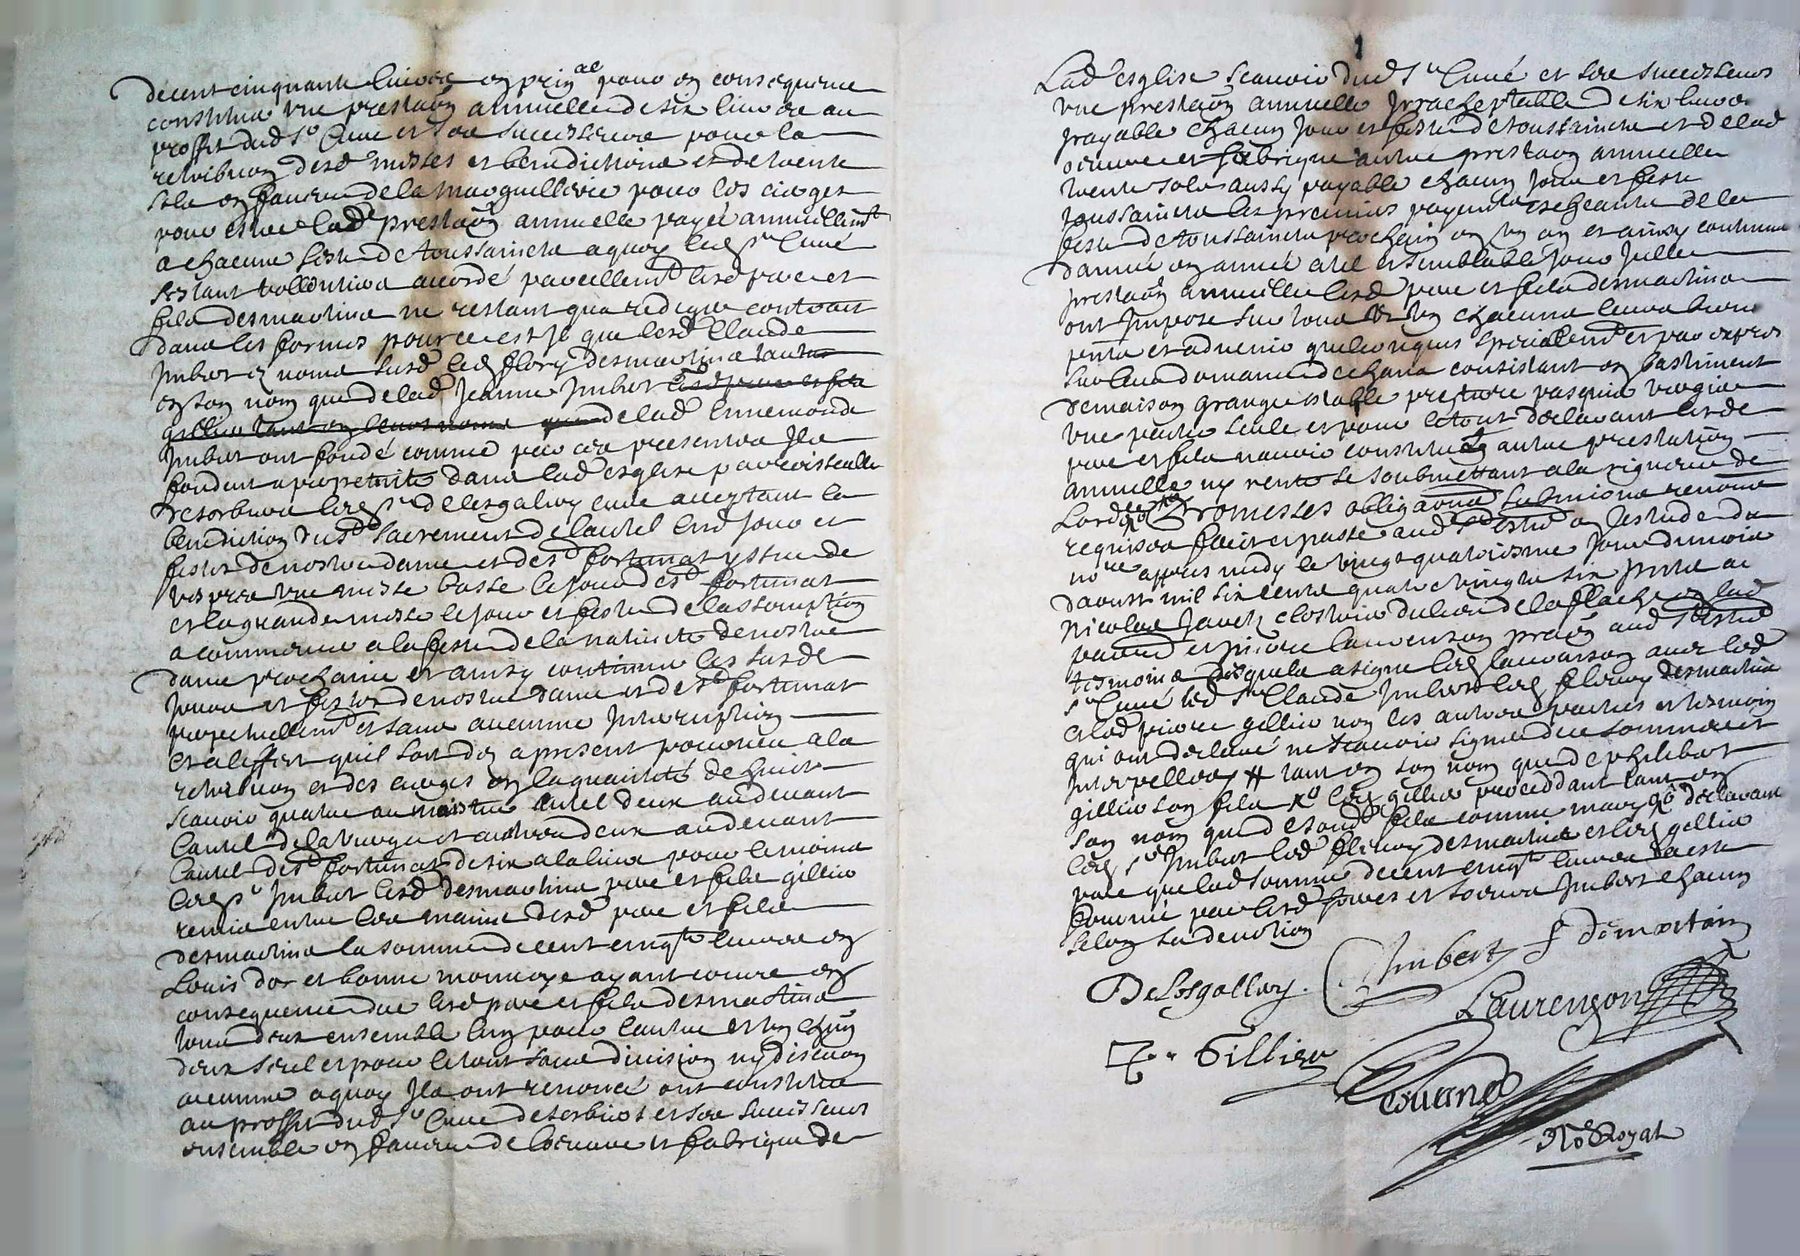 decent cinquante livres en prin al pour en consequence
constitué une prestaon annuelle de six livres au
proffit dud Sr Curé et ses successeurs pour la
retribuon desd messes et benedictions et de trente
sols en faveur de la marguillerie pour les cierges
pour estre lad prestaon annuelle payée annuellemt
a chacune feste de toussaincts a quoy led Sr Curé
sestant vollontiers accordé pareillemt lesd pere et
fils desmartins ne restant qua rediger contrait
dans les formes pource est je que lesd Claude
Imbert es noms susd led fleury desmartins tant
en son nom que de lad Jeanne Imbert lesd pere et fils
gillier tant en leurs noms que de lad Ennemonde
Imbert ont fondé comme par ces presentes Ils
fondent a perpetuité dans lad esglise parroissialle
de sorbiers led Sr de lesgallery curé acceptant la
benediction du st Sacrement de lautel lesd jour et
festes de nostre dame et de st fortunat yssue de
vespres une messe basse le jour de st fortunat
et la grande messe le jour et feste de lassomption
a commencer a la feste de la nativité de nostre
dame prochaine et ainsy continuer les susd
jours et festes de nostre dame et de st fortunat
perpetuellemt et sans aucune Interuption
et a leffect quil soit des a present pourveu a la
retribuon et des cierges en la quantité de huict
scavoir quatre au maistre autel deux au devant
lautel de la vierge et autres deux au devant
lautel de st fortunat de six a la livre pour le moins
led Sr Imbert lesd desmartins pere et fils gillier
remis entre les mains desd pere et fils
desmartins la somme de cent cinqte livres en
Louis dor et bonne monnoye ayant cours en
consequence que lesd pere et fils desmartins
tous deux ensemble lun pour lautre et un chun
deux seul et pour le tout sans division ny discuon
aucune a quoy Ils ont renoncé ont constitué
au proffit dud Sr Curé de sorbiers et ses successeurs
ensemble en faveur de loeuvre et fabrique de
Lad esglise scavoir dud Sr Curé et ses successeurs
une prestaon annuelle Irracheptable de six livres
payable chacun jour et feste de toussaincts et de lad
oeuvre et fabrique autre prestaon annuelle
trente sols aussy payable chacun jour et feste
toussaincts les premiers payemts escheants de la
feste de toussaincts prochain en un an et ainsy continuer
dannée en année a tel et semblable jour Iscelle
prestaon annuelle lesd pere et fils desmartins
ont Imposé sur tous et un chacuns leurs biens
pnts et advenir quelconques specialemt et par expres
sur leur domaine de chana consistant en bastiment
de maison grange estable preture pasquis vergier
une partie seule et pour le tout declarant lesd
pere et fils navoir constitué autre prestation
annuelle ny rente se soubmettant a la rigueur de
Lordce Promesses obligaons submissions renons
requises faict et passé aud Sorbiers en lestude du
nore appres midy le vingt quatriesme jour du mois
daoust mil six cents quatre vingts six pnts a
Nicolas Janck clostrier du lieu de la flache en lad
parroisse et pierre laurenson praon aud Sorbiers
tesmoins desquels a signé led laurenson avec led
Sr Curé led Sr Claude Imbert led fleury desmartins
et led pierre gillier non les autres parties et tesmoin
qui ont declaré ne scavoir signer de ce sommés et
Interpellés # tant en son nom que de philibert
gillier son fils Xo led gillier proceddant tant en
son nom que de sond fils comme mary Xo declarant
led Sr Imbert led fleury desmartins et led gillier
pere que lad somme de cent cinqte livres a este
fournie par lesd freres et soeurs Imbert chacun
selon sa devotion
DeLesgallery. C Imbert f demartain
Laurenson
P. Gillier
Couand
No Royal